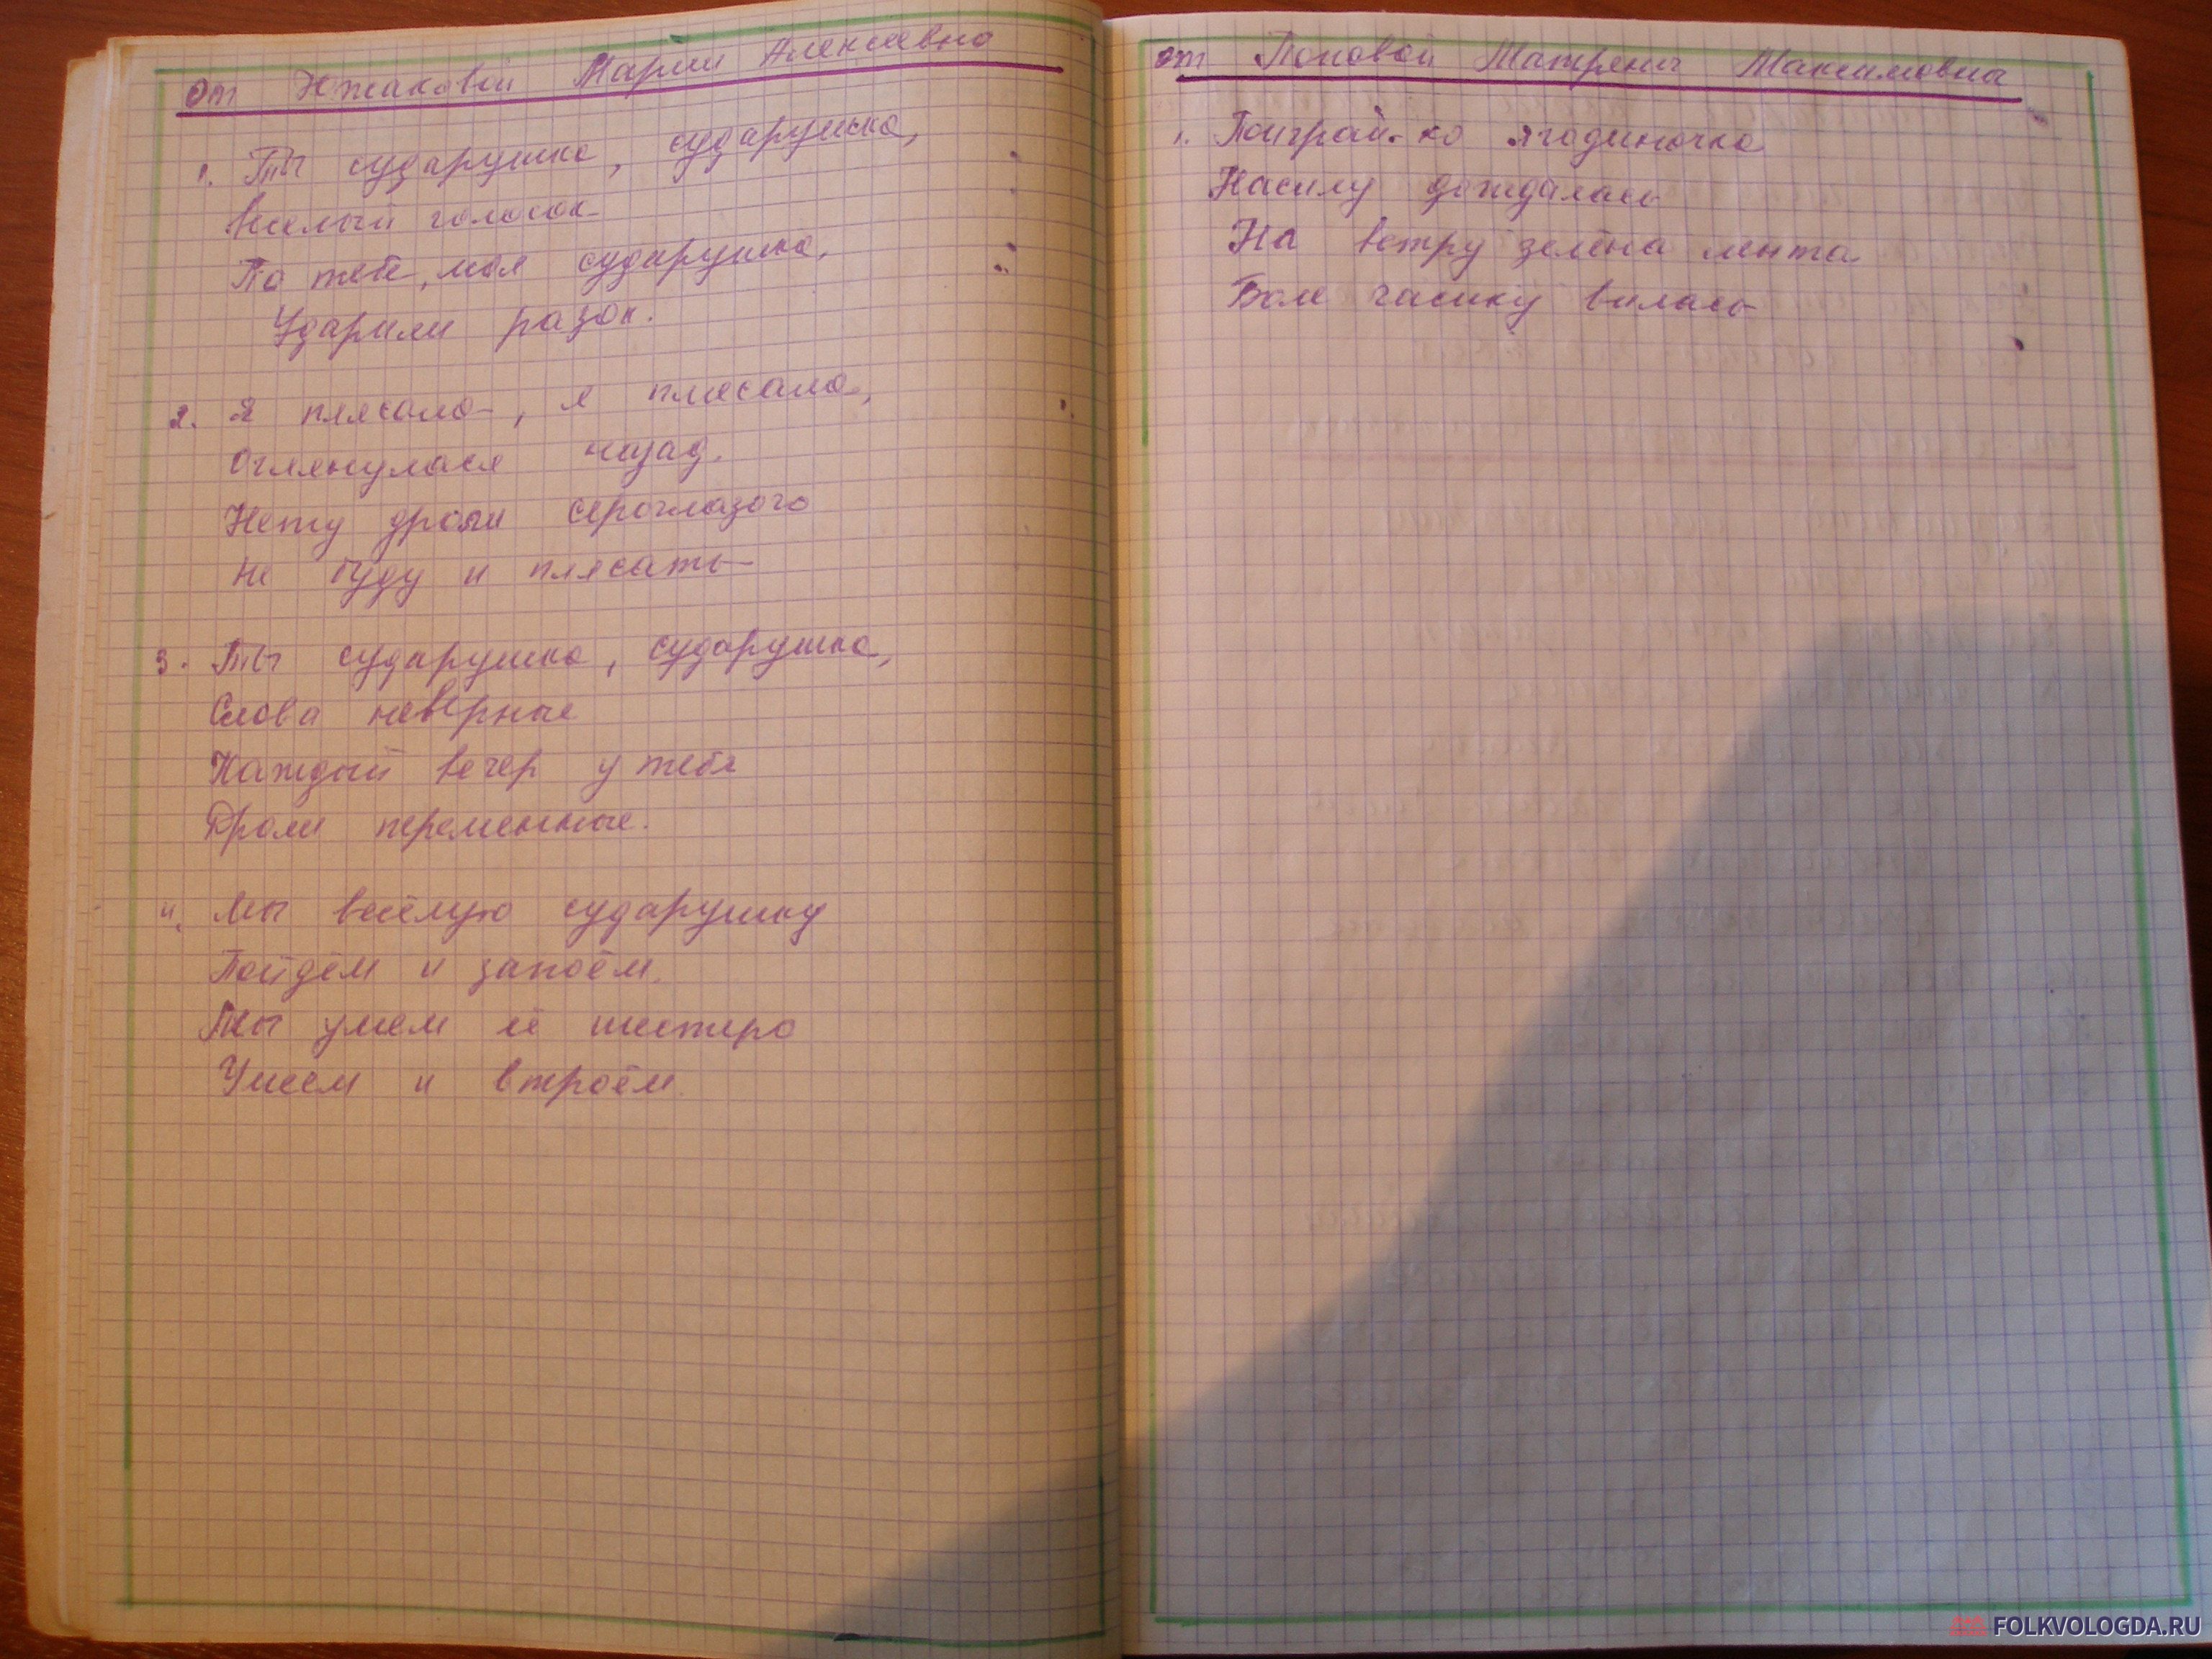 от Южаковой Марии Алексеевна
1. Ты сударушка, сударушка,
Веселый голосок
По тебе, моя сударушка,
Ударили разок.
2. Я плясала, я плясала,
Оглянулася назад.
Нету дроли сероглазого
Не буду и плясать
3. Ты сударушка, сударушка,
Слова неверные
Каждый вечер у тебя
Дроли переменные.
4. Мы весёлую сударушку
Пойдём и запоём.
Мы умем её шестеро
Умеем и втроём.
от Поповой Матрены Максимовна
1. Поиграй-ко ягодиночка
Насилу дождалась
На ветру зелёна лента
Боле часику вилась
FOLKVOLOGDA.RU